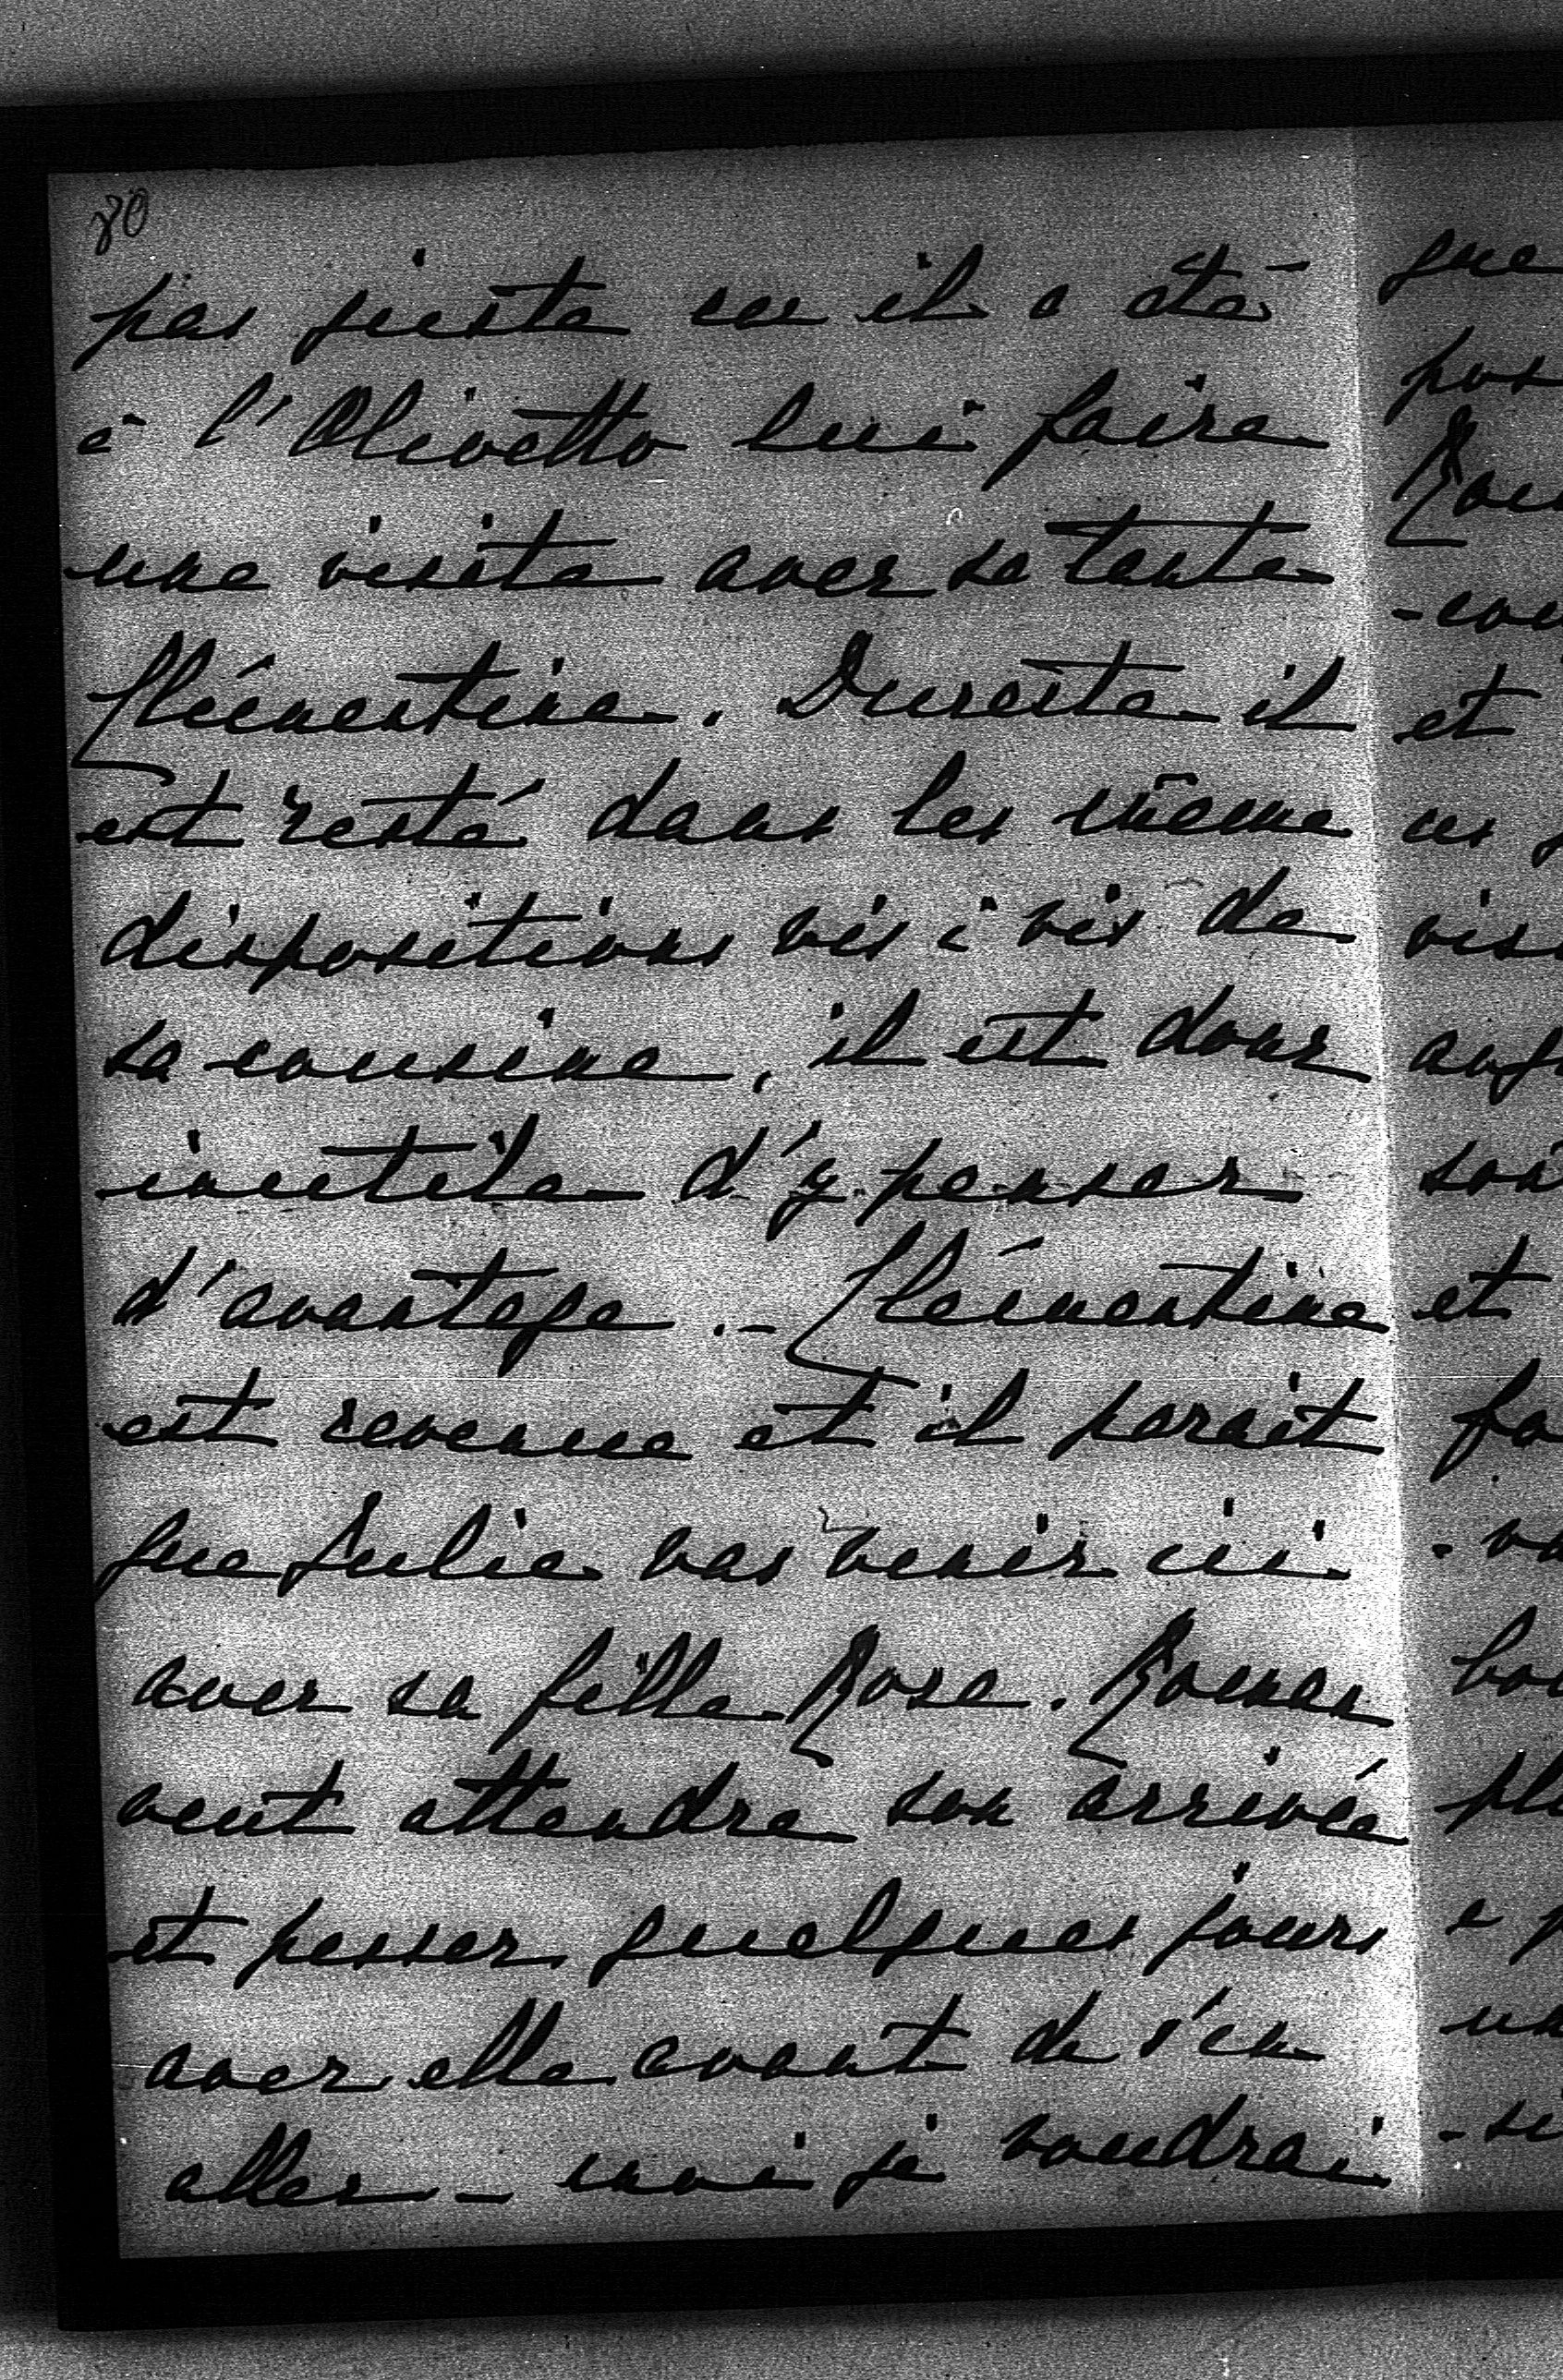 80
pas juste car il a été
à l'Olivetto lui faire
une visite avec sa tante
Clémentine. Dureste il
est resté dans les même
dispositions vis à vis de
sa cousine, il est donc
inutile d'y penser
d'avantage.- Clémentine
est revenue et il parait
que Julie vas venir ici
avec sa fille Rose. Roman
veut attendre son arrivée
et passer quelques jours
avec elle avant de s'en
aller - moi je voudrai
que
pas
et
et